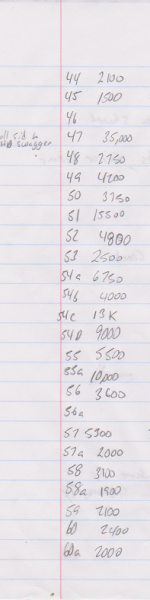 44 2100
45 1500
46
47 35,000
48 2750
49 4200
50 3750
51 15500
52 4900
53 2500
54a 6750
54b 4000
54c 13K
54D 9000
55 5500
55a 10,000
56 3600
56a
57 5300
57a 2000
58 3100
58a 1900
59 2100
60 2400
60a 2000